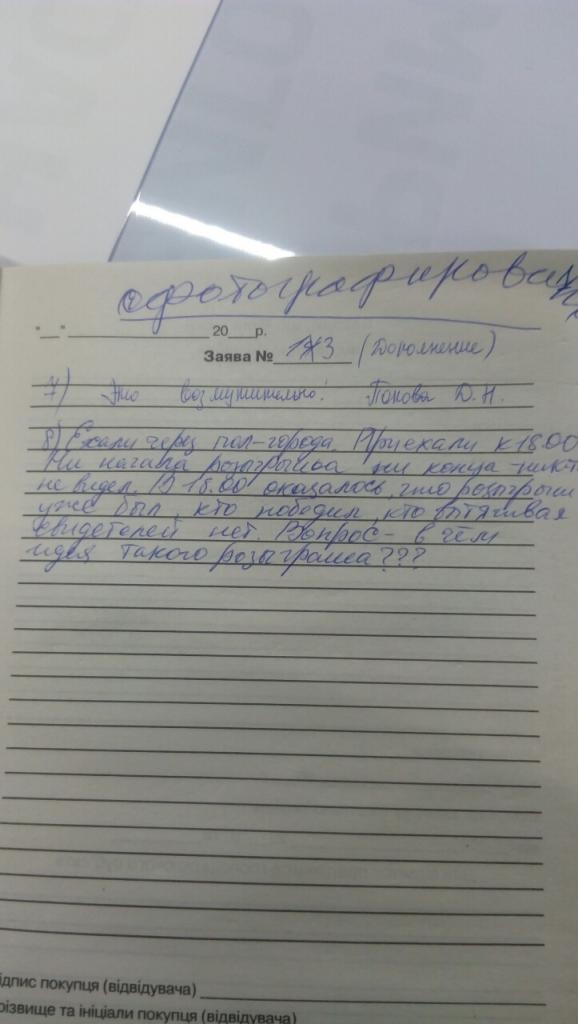 сфотографирован
"__" ____________ 20__р.
Заява № 173 (Дополнение)
7) Это возмутительно! Попова Д.Н.
8) Ехали через пол-города. Приехали к 18.00
Ни начала розыгрыша ни конца никто
не видел. В 18.00 оказалось, что розыгрыш
уже был, кто победил, кто вытягивал
свидетелей нет. Вопрос - в чём
идея такого розыграша???
ідпис покупця (відвідувача)
різвище та ініціали покупця (відвідувача)